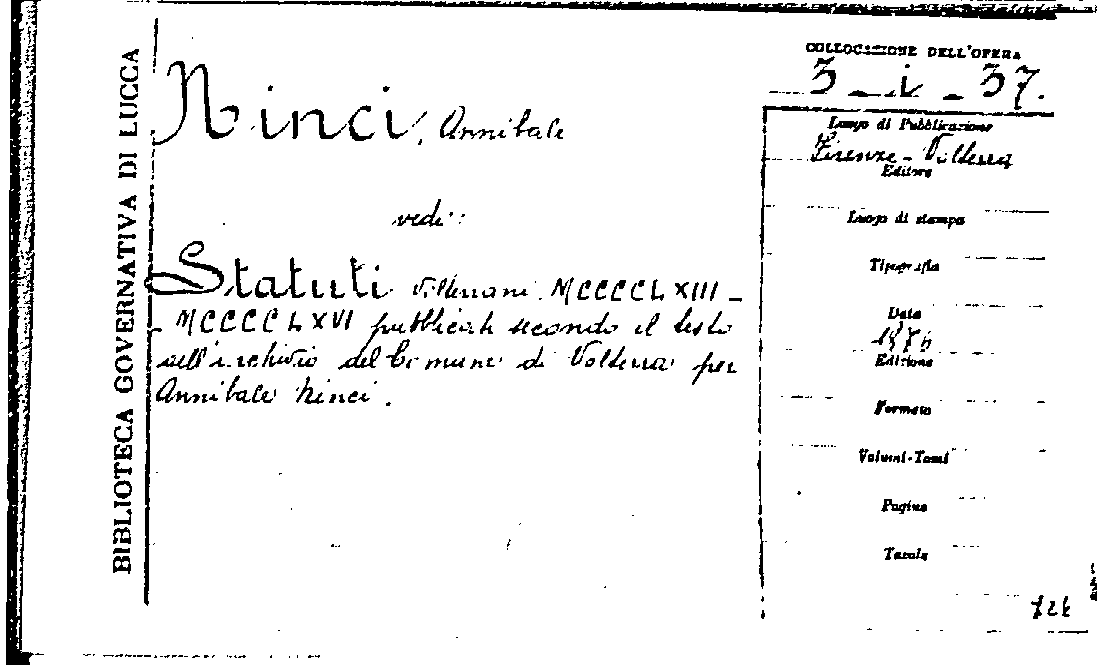 BIBLIOTECA GOVERNATIVA DI LUCCA
Ninci, Annibale
vedi:
Statuti Volterrani MCCCCLXIII -
- MCCCCLXVI pubblicati secondo il testo
dell'archivio del Comune di Volterra per
Annibale Ninci.
COLLOCAZIONE DELL'OPERA
3 - i - 37.
Luogo di Pubblicazione
Firenze - Volterra
Editore
Luogo di stampa
Tipografia
Data
Edizione
Formato
Volumi-Tomi
Pagine
Tavole